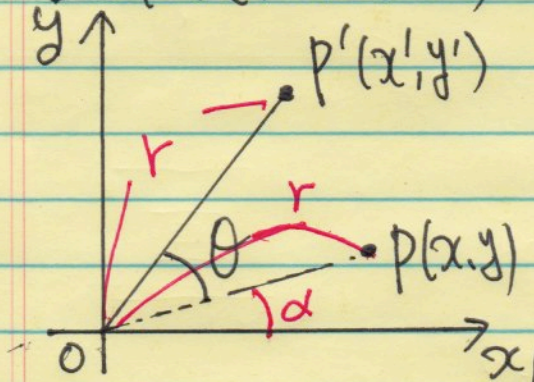 y
p'(x',y')
r
r
θ
p(x,y)
α
O
x